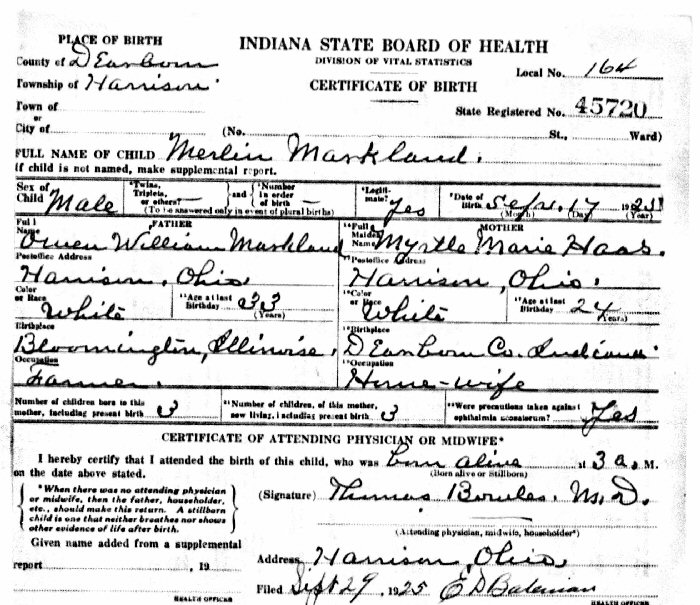 PLACE OF BIRTH
INDIANA STATE BOARD OF HEALTH
County of DEarborn
DIVISION OF VITAL STATISTICS
Local No. 164
Township of Harrison
CERTIFICATE OF BIRTH
Town of
or
State Registered No. 45720
City of (No. St., Ward)
FULL NAME OF CHILD Merlin Markland.
If child is not named, make supplemental report.
Sex of Child Male
Twins, Triplets, or others? — and Number in order of birth —
(To be answered only in event of plural births)
Legitimate? Yes
Date of Birth Sept. 17 192
(Month) (Day) (Year)
FATHER
Full Name Owen William Markland
MOTHER
Full Maiden Name Myrtle Marie Haas.
Postoffice Address
Harrison, Ohio.
Postoffice Address
Harrison, Ohio.
Color or Race White
Age at last Birthday 33 (Years)
Color or Race White
Age at last Birthday 24 (Years)
Birthplace
Bloomington, Illinoise.
Birthplace
DEarborn Co. Indiana
Occupation
Farmer.
Occupation
House-wife
Number of children born to this mother, including present birth 3
Number of children, of this mother, now living, including present birth 3
Were precautions taken against ophthalmia neonatorum? Yes
CERTIFICATE OF ATTENDING PHYSICIAN OR MIDWIFE*
I hereby certify that I attended the birth of this child, who was born alive at 3 a. M.
on the date above stated.
(Born alive or Stillborn)
*When there was no attending physician
or midwife, then the father, householder,
etc., should make this return. A stillborn
child is one that neither breathes nor shows
other evidence of life after birth.
(Signature) Thomas Bowles. M.D.
(Attending physician, midwife, householder*)
Given name added from a supplemental
report , 19
Address Harrison, Ohio,
Filed Sept 29, 1925 E D Bateman
HEALTH OFFICER
HEALTH OFFICER